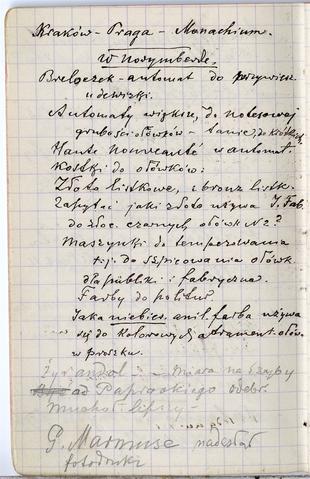 Kraków - Praga - Monachium.
W Norymberdze,
Breloczek - automat do przywiesz.
u dewizki.
Automaty większe, do notesowej
grubości ołówków - tanie, do krótkich,
Haute Nouveauté w automat.
Kostki do ołówków:
Złoto listkowe, i bronz listk.
Zapytać jaki złoto używa J. Fab.
do złoc. czarnych ołówk N 2?
Maszynki do temperowania
t.j. do szpicowania ołówk.
dla publik. i fabryczna.
Farby do politur
Jaka niebies. anil. farba używa
się do kolorowych atrament. ołów.
w proszku.
Żyrandol : - miara na szyby
od Paprockiego odebr.
lipiny -
P. Marmuse nadesłał
fotodruki